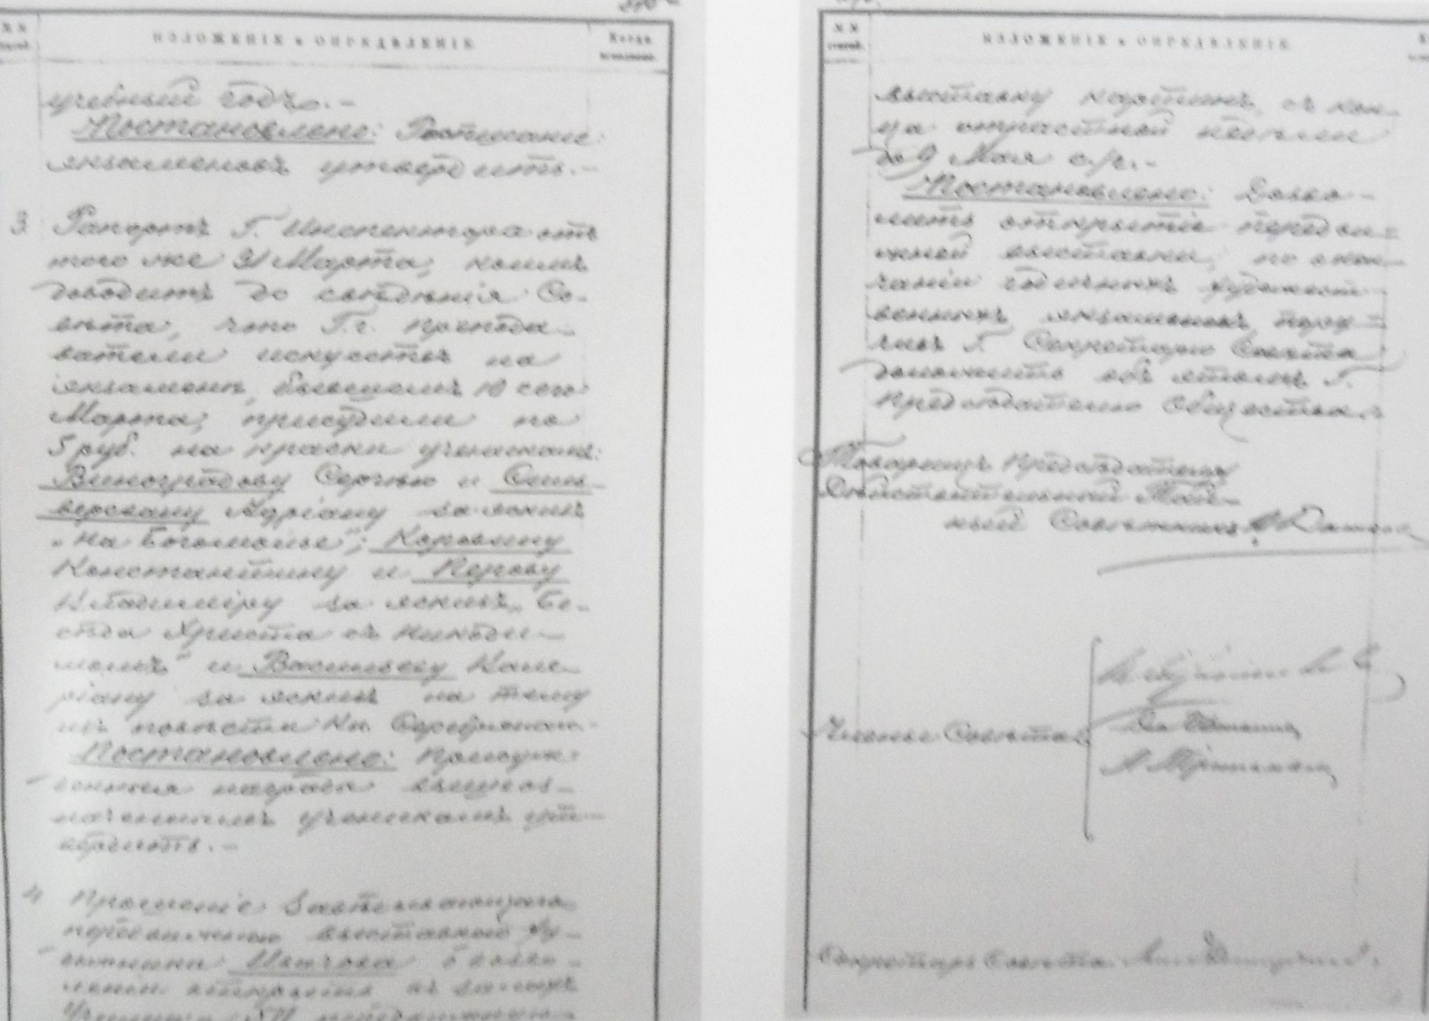 ИЗЛОЖЕНІЕ и ОПРЕДѢЛЕНІЕ.
учебный годъ.-
Постановлено: Росписаніе
экзаменовъ утвердить.-
3. Рапортъ Г. Инспектора отъ
того же 31 Марта, коимъ
доводитъ до свѣдѣнія Со-
вѣта, что Г.г. препода-
ватели искусствъ на
экзаменѣ, бывшемъ 10 сего
Марта, присудили по
5 руб. на краски ученикамъ:
Виноградову Сергѣю и Силь-
версвану Адріану за эскизъ
„На богомолье"; Коровину
Константину и Перову
Владиміру за эскизъ „Бе-
сѣда Христа съ Никоди-
момъ" и Васильеву Вале-
ріану за эскизъ на тему
изъ повѣсти Кн. Серебряный.
Постановлено: Присуж-
денныя награды вышеоз-
наченнымъ ученикамъ ут-
вердить.-
4. Прошеніе Завѣдывающаго
передвижною выставкою Ху-
дожника о дозво-
леніи открытія въ залахъ
Училища передвижную
ИЗЛОЖЕНІЕ и ОПРЕДѢЛЕНІЕ.
выставку картинъ, съ кон-
ца страстной недѣли
до 9 Мая с/г.-
Постановлено: Дозво-
лить открытіе передви-
жной выставки, по окон-
чаніи годичныхъ художест-
венныхъ экзаменовъ, пору-
чивъ Г. Секретарю Совѣта
доложить объ этомъ Г.
Предсѣдателю Общества.
Товарищъ Предсѣдателя
Дѣйствительный Тай-
ный Совѣтникъ
Члены Совѣта
Секретарь Совѣта